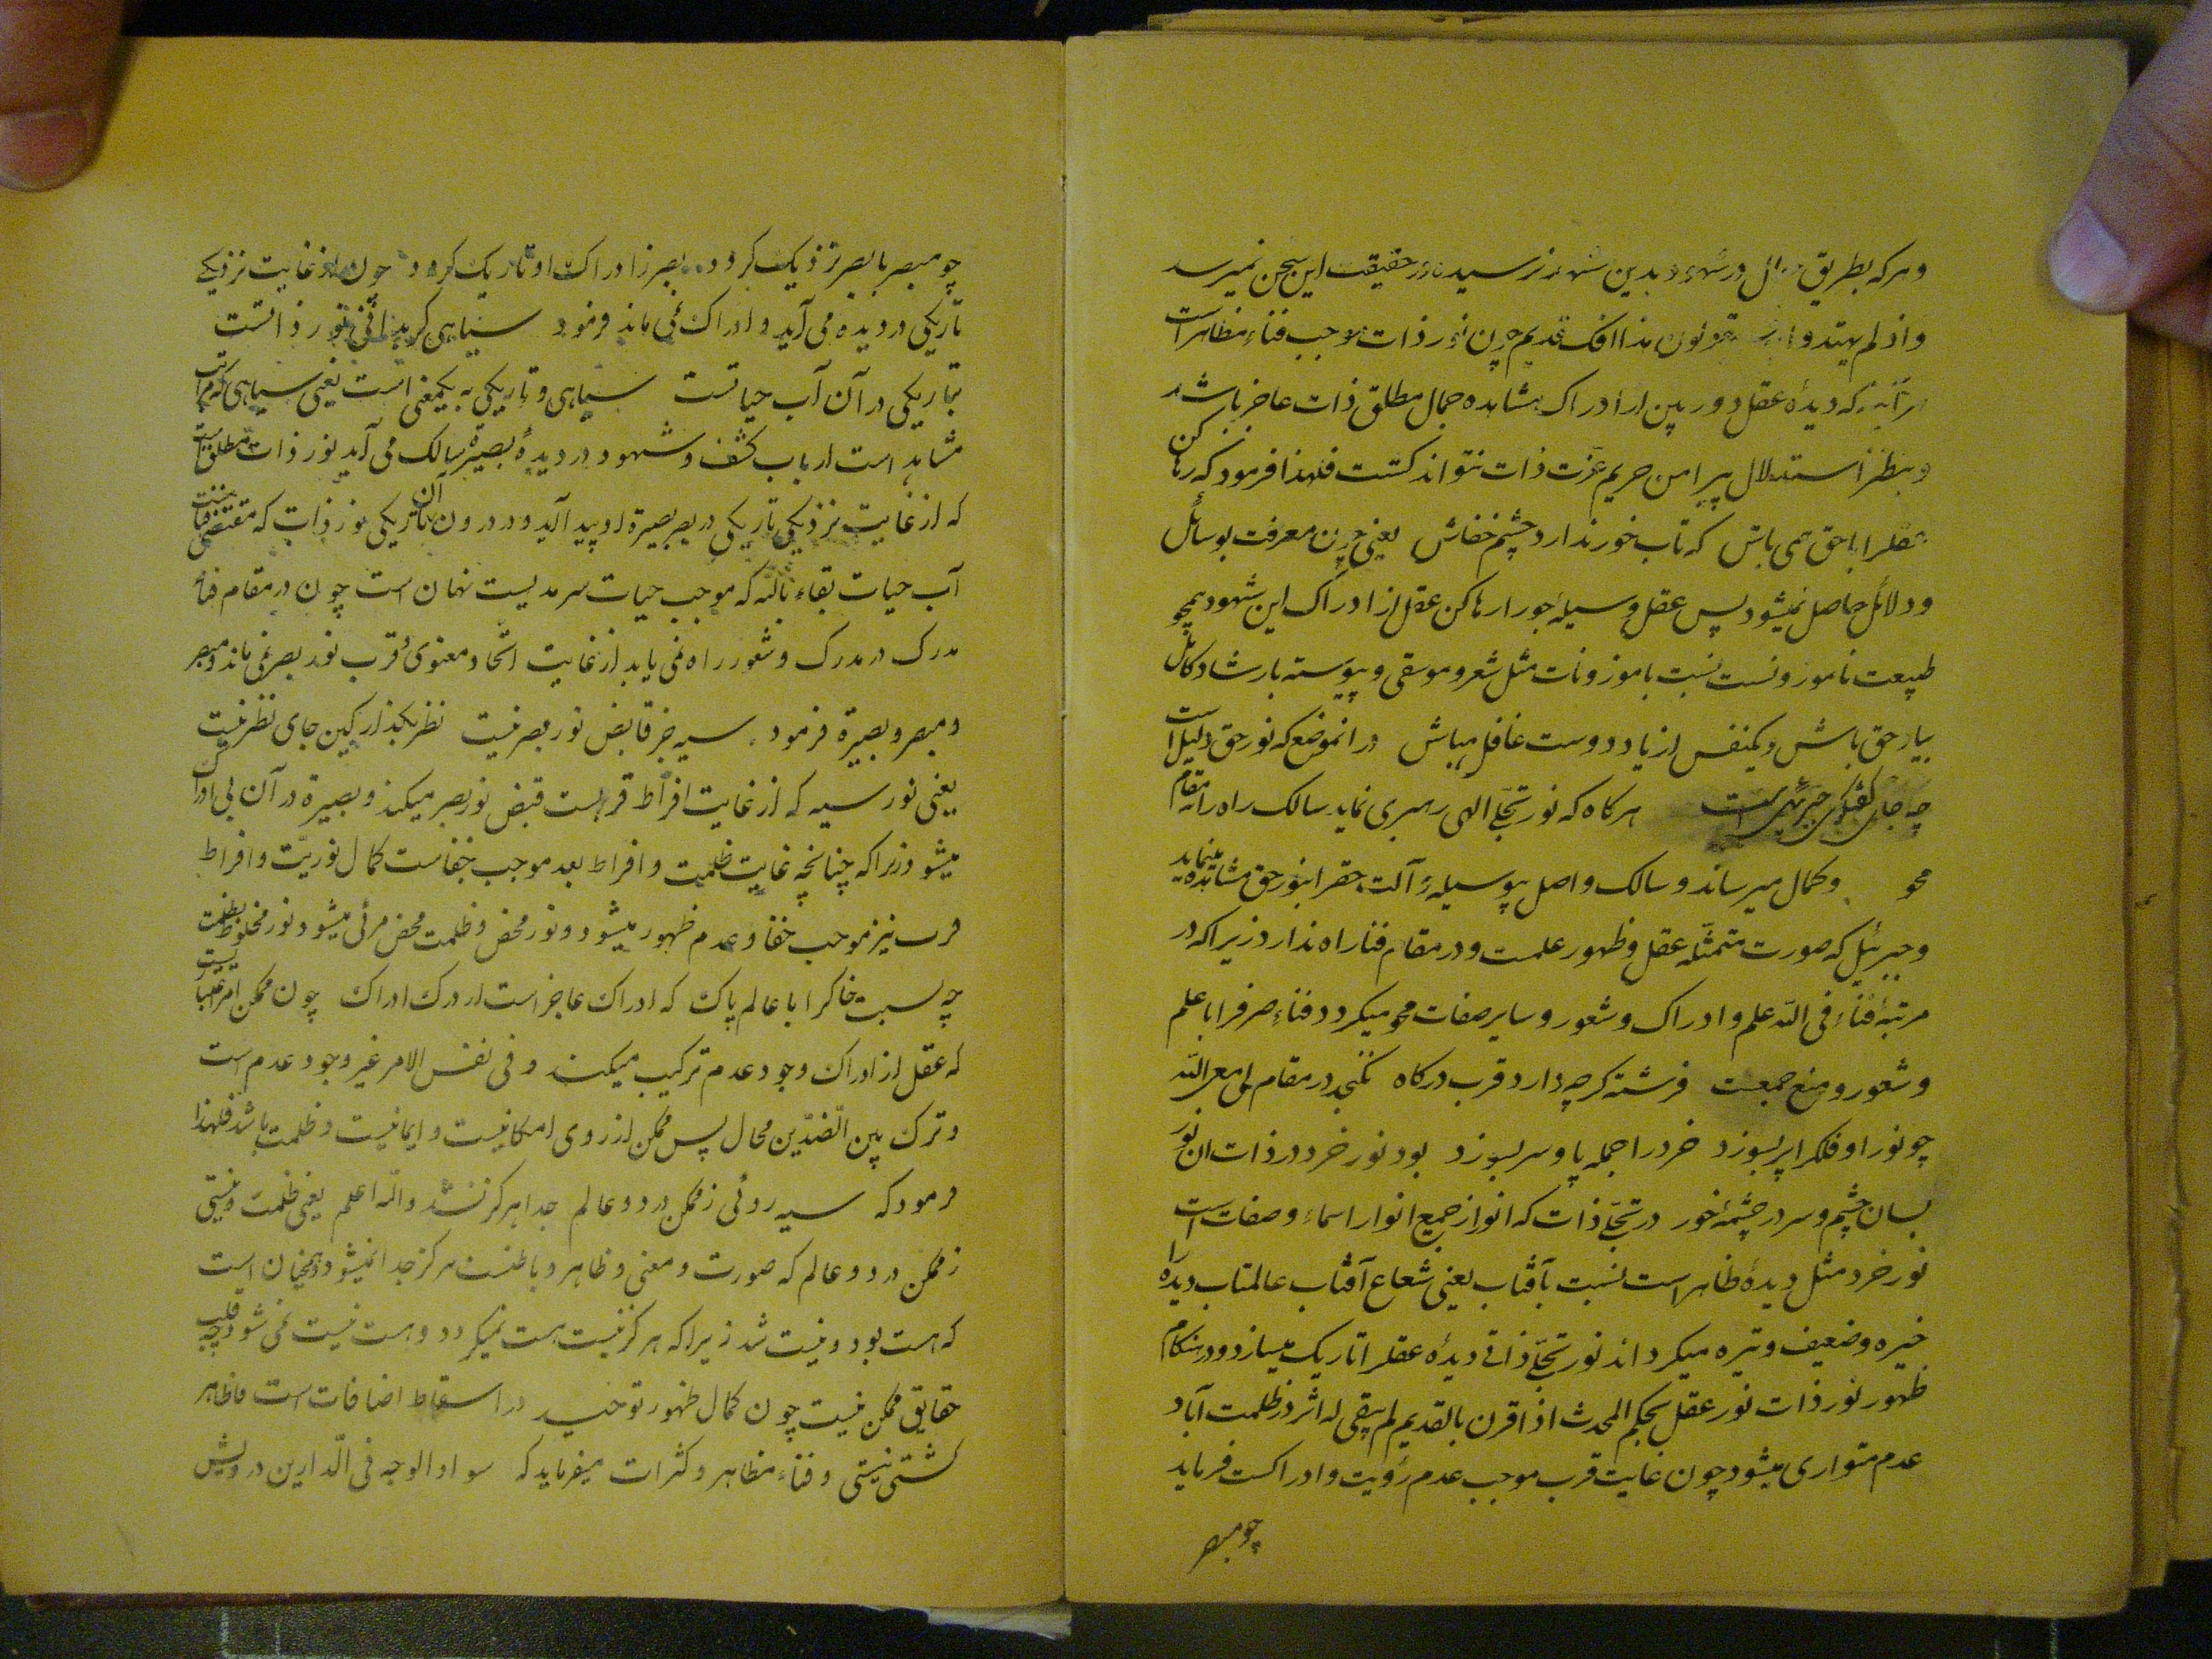 وهرکه بطریق حال در شهود بدین شهد نرسیده در حقیقت این سخن نمیرسد
واذ لم یهتدوا به فسیقولون هذا افک قدیم چون نور ذات موجب فناء مظاهر است
هر آینه که دیدهٔ عقل دوربین از ادراک مشاهده جمال مطلق ذات عاجز باشد
و بنظر استدلال پیرامن حریم عزت ذات نتواند کشت فلهذا فرمود که رها کن
عقلرا باحق همی باش که تاب خور ندارد چشم خفاش یعنی چون معرفت بوسائل
ودلائل حاصل نمیشود پس عقل وسیله جو را رها کن عقل از ادراک این شهود همچو
طبیعت ناموزونست نسبت باموزونات مثل شعر و موسقی و پیوسته بارشاد کامل
بیاد حق باش ویکنفس از یاد دوست غافل مباش درانموضع که نور حق دلیل است
چه جای کفتکوی جبرئیل است هرکاه که نور تجلی الهی رهبری نماید سالک راه را بمقام
محو وکمال میرساند و سالک واصل بیوسیله و آلت حقرا بنور حق مشاهده مینماید
وجبرئیل که صورت متمثله عقل وظهور علمست ودر مقام فنا راه ندارد زیرا که در
مرتبهٔ فناء فی الله علم و ادراک و شعور وسایر صفات محو میکردد فناء صرفرا با علم
وشعور و منع جمعست فرشته کرچه دارد قرب درکاه نکنجد در مقام لی مع الله
چو نور او فلکرا پر بسوزد خرد را جمله پا وسر بسوزد بود نور خرد در ذات انور
بسان چشم و سر در چشمهٔ خور در تجلی ذات که انور از جمیع انوار اسماء وصفات است
نور خرد مثل دیدهٔ ظاهر است نسبت بآفتاب یعنی شعاع آفتاب عالمتاب دیده را
خیره وضعیف وتیره میکرداند نور تجلی ذاتی دیدهٔ عقلرا تاریک میسازد و در هنکام
ظهور نور ذات نور عقل بحکم المحدث اذا قرن بالقدیم لم یبقی له اثر در ظلمت آباد
عدم متواری میشود چون غایت قرب موجب عدم رؤیت و ادراکست فرماید
چو مبصر
چو مبصر با بصر نزذیک کرود بصر ز ادراک او تاریک کرود چون از غایت نزذیکے
تاریکی در دیده می آید و ادراک نمی ماند فرمود سیاهی کر بدانی نور ذاتست
بتاریکی در آن آب حیاتست سیاهی و تاریکی به یکمعنی است یعنی سیاهی که در مراتب
مشاهده است ارباب کشف وشهود در دیدهٔ بصیرة سالک می آید نور ذات مطلق است
که از غایت نزذیکی تاریکی در بصر بصیرة او پیدا آید ودر درون آن تاریکی نور ذات که مقتضی فناست
آب حیات بقاء بالله که موجب حیات سرمدیست نهان است چون در مقام فنا
مدرک در مدرک وشعور راه نمی یابد از غایت اتحاد معنوی و قرب نور بصر نمی ماند ومبصر
ومبصر وبصیرة فرمود سیه جز قابض نور بصر نیست نظر بکذار کین جای نظر نیست
یعنی نور سیه که از غایت افراط قربست قبض نور بصر میکند وبصیرة در آن بی ادراک
میشود زیرا که چنانچه غایت ظلمت وافراط بعد موجب خفاست کمال نوریّت وافراط
قرب نیز موجب خفا و عدم ظهور میشود ونور محض وظلمت محض مرئی میشود نور مخلوط بظلمت
چه نسبت خاکرا با عالم پاک که ادراک عاجز است از درک ادراک چون ممکن امر اعتباریست
که عقل از ادراک وجود عدم ترکیب میکند وفی نفس الامر غیر وجود عدم است
و ترک بین الضّدّین محال پس ممکن از روی امکانیست وایمانیست وظلمت باشد فلهذا
فرمود که سیه روئی ز ممکن در دو عالم جدا هرکز نشد والله اعلم یعنی ظلمت ونیستی
ز ممکن در دو عالم که صورت ومعنی وظاهر وباطنست هرکز جدا نمیشود و همچنان است
که هست بود ونیست شد زیرا که هرکز نیست هست نمیکردد وهست نیست نمی شود وقلب
حقایق ممکن نیست چون کمال ظهور توحید در اسقاط اضافات است وظاهر
کشتی نیستی وفناء مظاهر وکثرات میفرماید که سواد الوجه فی الدارین درویش